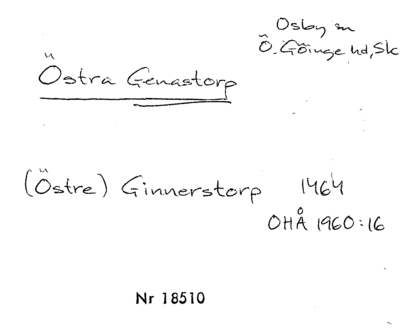 Osby sn
Ö. Göinge hd, Sk
Östra Genastorp
(Östre) Ginnerstorp 1464
OHÅ 1960:16
Nr 18510